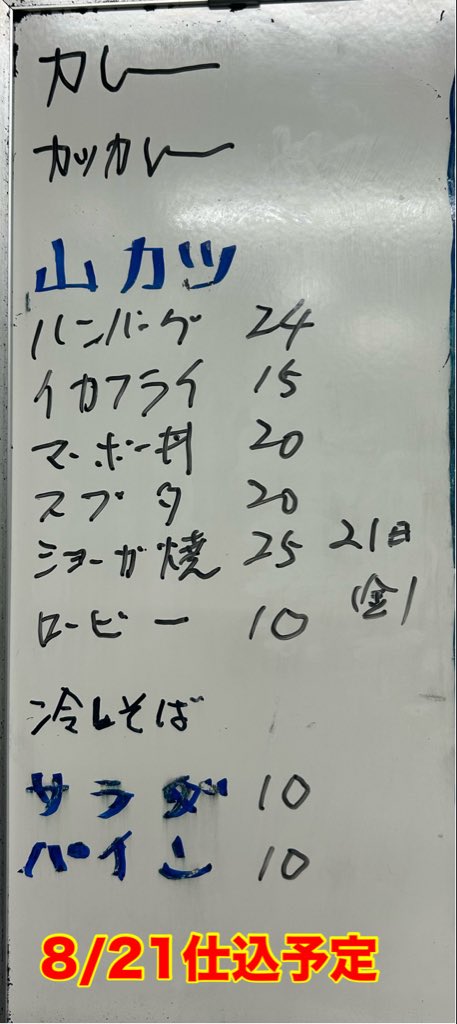 カレー
カツカレー
山カツ
ハンバーグ 24
イカフライ 15
マーボー丼 20
スブタ 20
ショーガ焼 25 21日
(金)
ロービー 10
冷しそば
サラダ 10
パイン 10
8/21仕込予定